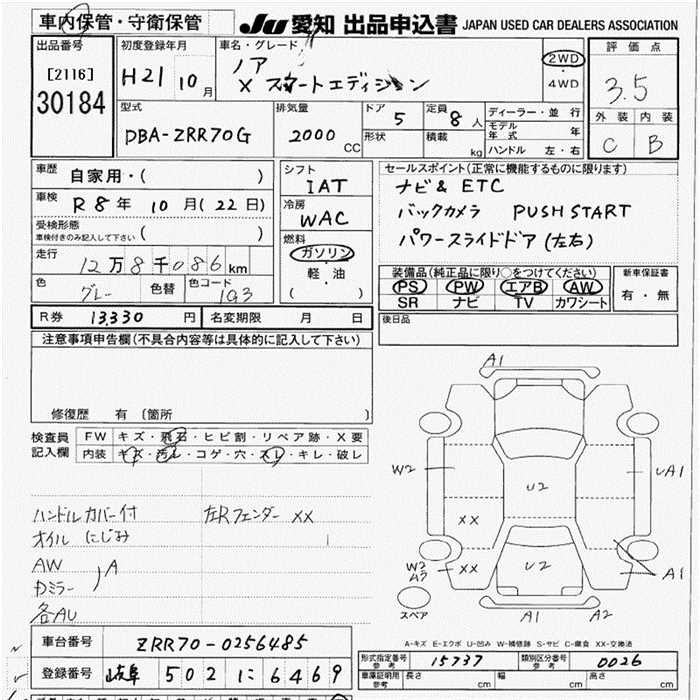 車内保管・守衛保管
JU 愛知 出品申込書 JAPAN USED CAR DEALERS ASSOCIATION
出品番号
[2116]
30184
初度登録年月
H21 10月
車名・グレード
ノア
X スマートエディション
2WD
・
4WD
評価点
3.5
外装 内装
C B
型式
DBA-ZRR70G
排気量
2000 CC
ドア 5
形状
定員 8人
積載 kg
ディーラー・並行
モデル年式 年
ハンドル 左・右
車歴 自家用・( )
車検 R8年 10月(22日)
受検形態
車検付きのみ記入して下さい ( )
走行 12万8千086km
色 グレー 色替 色コード 1G3
シフト
IAT
冷房
WAC
燃料
ガソリン
・
軽・油
( )
セールスポイント(正常に機能するものに限ります)
ナビ& ETC
バックカメラ PUSH START
パワースライドドア(左右)
装備品(純正品に限り○をつけてください)
PS PW エアB AW
SR ナビ TV カワシート
新車保証書
有・無
R券 13,330円 名変期限 月 日
後日品
注意事項申告欄(不具合内容等は具体的に記入して下さい)
修復歴 有 〔箇所 〕
検査員
記入欄
FW キズ・飛石・ヒビ割・リペア跡・X要
内装 キズ・汚レ・コゲ・穴・スレ・キレ・破レ
ハンドルカバー付 左Rフェンダー XX
オイルにじみ
AW
Dミラー ) A
各AU
A1
W2
U2
UA1
XX
W2
ムラ
XX
U2
A1
スペア
A1
A2
A-キズ E-エクボ U-凹み W-補修跡 S-サビ C-腐食 XX-交換済
車台番号 ZRR70-0256485
登録番号 岐阜 502 に 6469
形式指定番号
参考
15737
類別区分番号
参考
0026
車庫証明用
参考
長さ cm 幅 cm 高さ cm